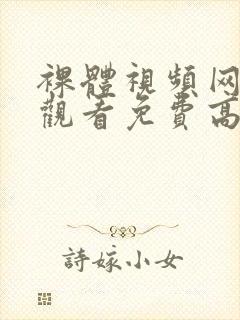 裸體視頻网
觀看免費高
詩嫁小女